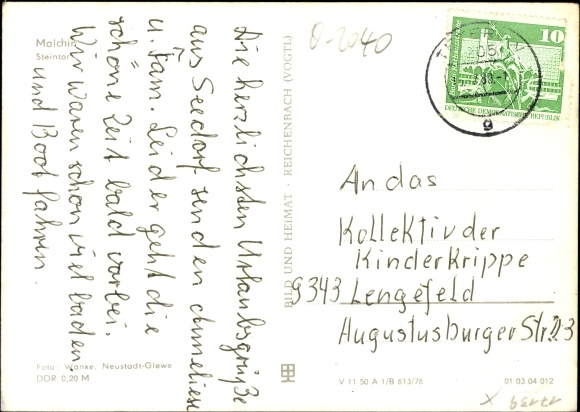 Malchin
Steintor
Die herzlichsten Urlaubsgrüße
aus Seedorf senden Anneliese
u. Fam. Leider geht die
schöne Zeit bald vorbei.
Wir waren schon viel baden
und Boot fahren.
Foto: Wanke, Neustadt-Glewe
DDR 0,20 M
BILD UND HEIMAT · REICHENBACH (VOGTL)
V 11 50 A 1/B 613/78
01 03 04 012
0-2040
10
DEUTSCHE DEMOKRATISCHE REPUBLIK
g
An das
Kollektiv der
Kinderkrippe
9343 Lengefeld
Augustusburger Str. 23
17139 x